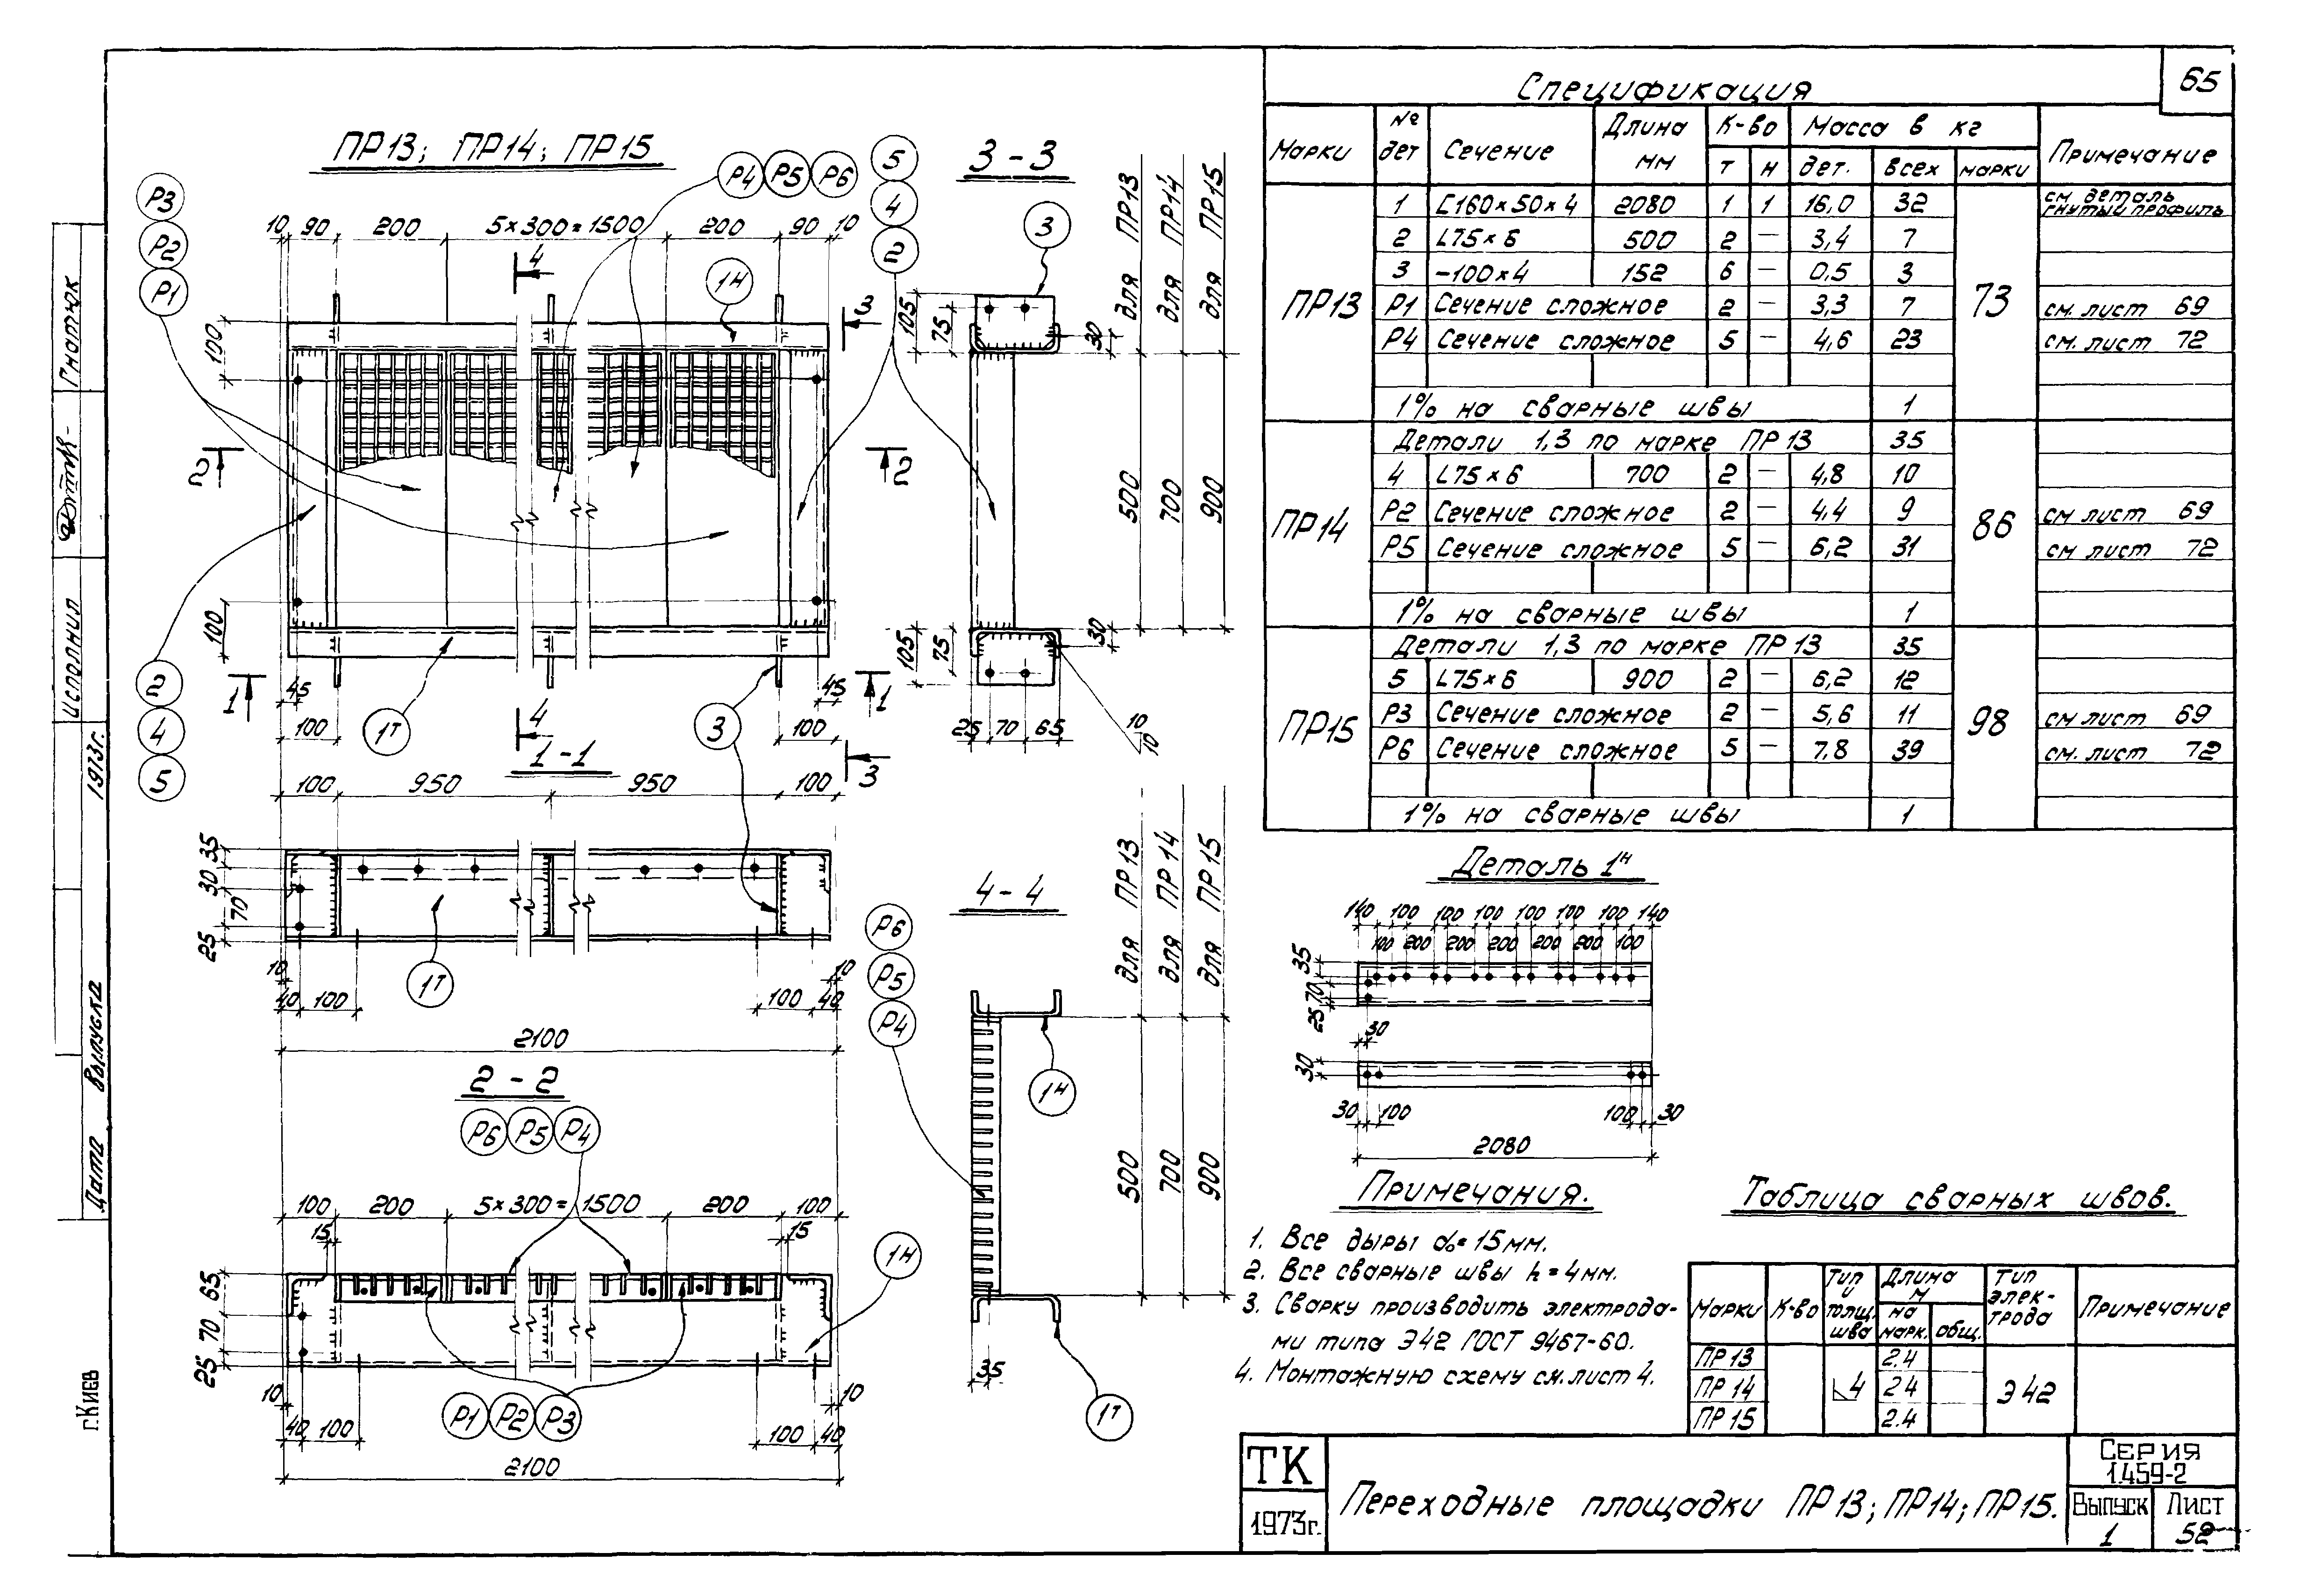 65
ПР13; ПР14; ПР15
Р3
Р2
Р1
Р4 Р5 Р6
10 90 200 5×300=1500 200 90 10
4
1Н
3
100
2 2
100
2
4
5
1 45 45 1
100 1Т 4 3 100
3
5
4
2
3-3
3
для ПР13
для ПР14
для ПР15
105 75 30
500 700 900
105 75 30
25 70 65
10
10
1-1
100 950 950 100
35
30
70
25
10 10
40 100 1Т 100 40
2100
2-2
Р6 Р5 Р4
100 200 5×300=1500 200 100
15 15
1Н
65
70
25
10 10
40 100 Р1 Р2 Р3 100 40
2100
4-4
Р6
Р5
Р4
для ПР13
для ПР14
для ПР15
1Н
500 700 900
35
1Т
Спецификация
Марки № дет Сечение Длина мм К-во Масса в кг Примечание
т н дет. всех марки
ПР13 1 [160×50×4 2080 1 1 16,0 32 73 см. деталь гнутый профиль
2 L75×6 500 2 — 3,4 7
3 -100×4 152 6 — 0,5 3
Р1 Сечение сложное 2 — 3,3 7 см. лист 69
Р4 Сечение сложное 5 — 4,6 23 см. лист 72
1% на сварные швы 1
ПР14 Детали 1,3 по марке ПР13 35 86
4 L75×6 700 2 — 4,8 10
Р2 Сечение сложное 2 — 4,4 9 см лист 69
Р5 Сечение сложное 5 — 6,2 31 см лист 72
1% на сварные швы 1
ПР15 Детали 1,3 по марке ПР13 35 98
5 L75×6 900 2 — 6,2 12
Р3 Сечение сложное 2 — 5,6 11 см лист 69
Р6 Сечение сложное 5 — 7,8 39 см. лист 72
1% на сварные швы 1
Деталь 1Н
140 100 100 100 100 100 100 140
100 200 200 200 200 200 100
35
70
25
30
30
30 100 100 30
2080
Примечания.
1. Все дыры d₀=15мм.
2. Все сварные швы h=4мм.
3. Сварку производить электрода-
ми типа Э42 ГОСТ 9467-60.
4. Монтажную схему см.лист 4.
Таблица сварных швов.
Марки К-во Тип и толщ. шва Длина м Тип элек-трода Примечание
на марк. общ.
ПР13 2.4
ПР14 4 24 Э42
ПР15 2.4
ТК
1973г.
Переходные площадки ПР13; ПР14; ПР15.
Серия
1.459-2
Выпуск Лист
1 52
Гнатюк
исполнил
1973г.
Дата выпуска
г.Киев